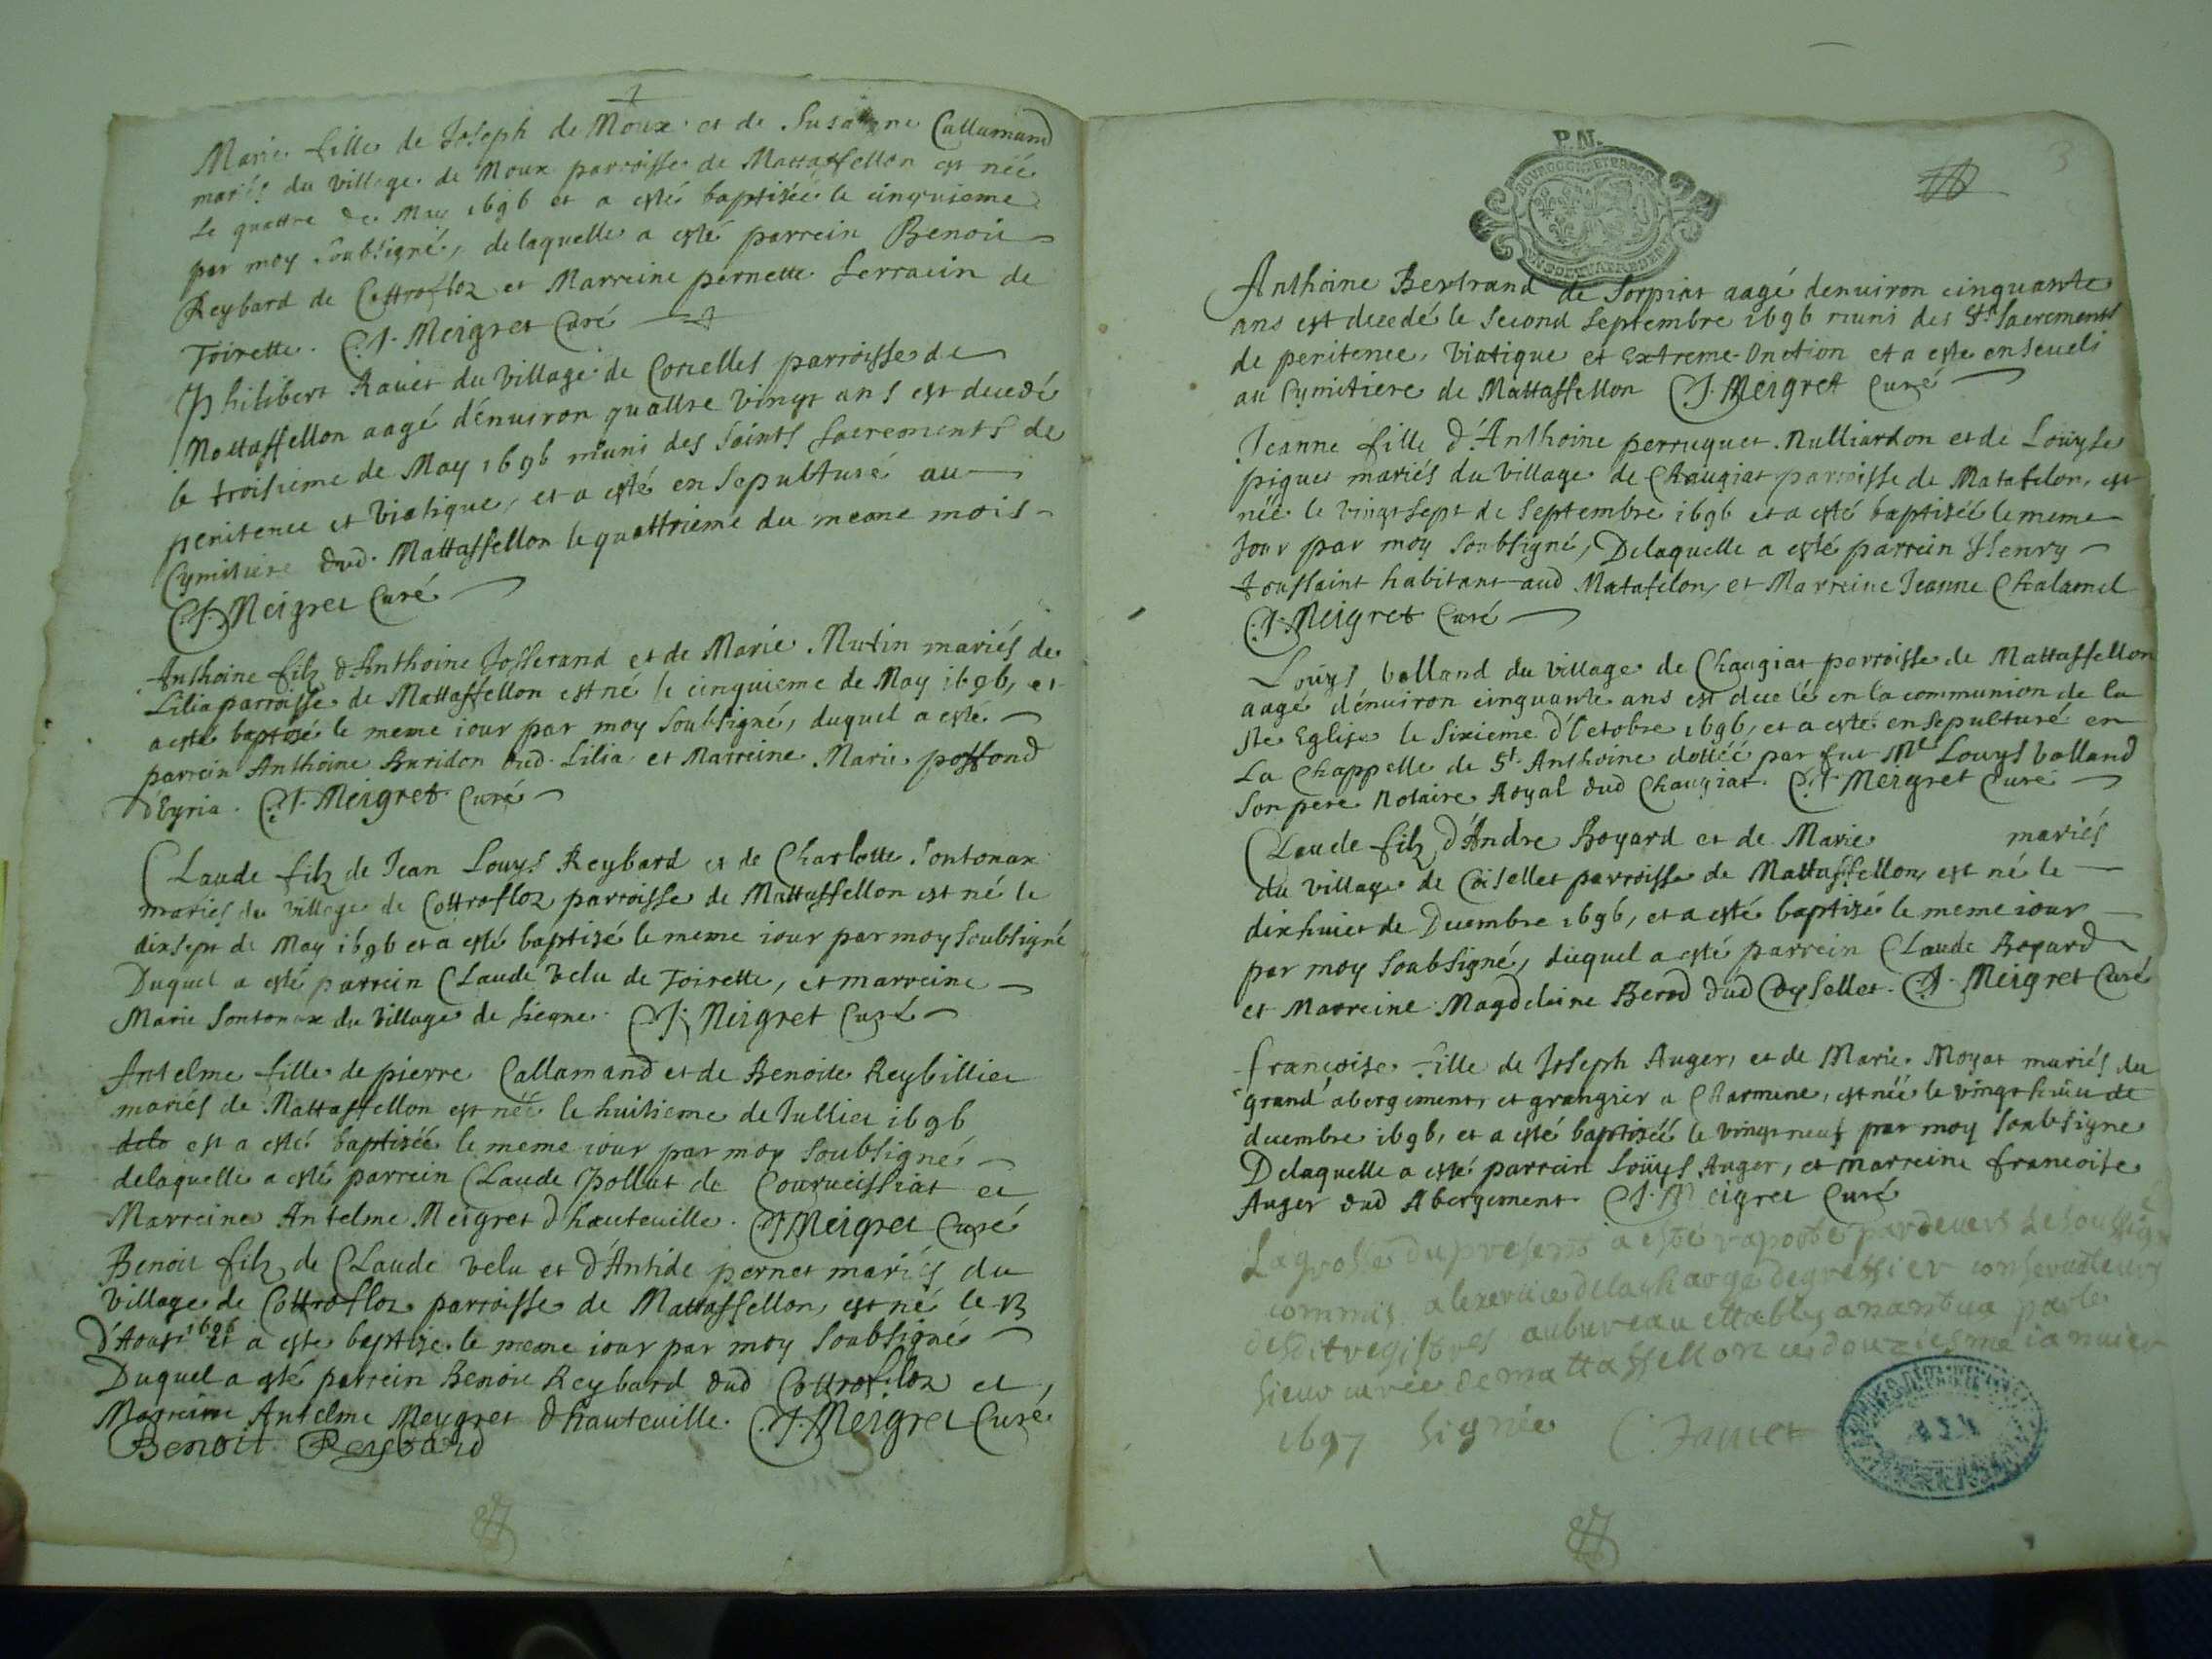 Marie fille de Joseph de Moux et de Susanne Callamand
mariés du village de Moux parroisse de Mattaffellon est née
le quattre de May 1696 et a esté baptizée le cinquieme
par moy soubsigné, delaquelle a esté parrein Benoit
Reybard de Cottrofloz et Marreine pernette Serracin de
Toirette. C. J. Meigret Curé
Philibert Ravet du village de Corcelles parroisse de
Mattaffellon aagé dénuiron quattre vingt ans est decedé
le troisieme de May 1696 muni des saints sacrements de
penitence et viatique, et a esté ensepulturé au
Cymitiere dud. Mattaffellon le quattrieme du meme mois
C. J. Meigret Curé
Anthoine filz d'Anthoine Josserand et de Marie Mutin mariés de
Lilia parroisse de Mattaffellon est né le cinquieme de May 1696, et
a esté baptizé le meme iour par moy soubsigné, duquel a esté
parrein Anthoine Buridon dud. Lilia et Marreine Marie poffond
d'Eyria. C. J. Meigret Curé
Claude filz de Jean Louys Reybard et de Charlotte Sontonax
mariés du village de Cottrofloz parroisse de Mattaffellon est né le
dixsept de May 1696 et a esté baptizé le meme iour par moy soubsigné
Duquel a esté parrein Claude velu de Toirette, et marreine
Marie Sontonax du village de Siegne. C. J. Meigret Curé
Antelme fille de pierre Callamand et de Benoite Reybillier
mariés de Mattaffellon est née le huitieme de Jullier 1696
est a esté baptizée le meme iour par moy soubsigné
delaquelle a esté parrein Claude Pollut de Courveissiat et
Marreine Antelme Meigret d'hauteuille. C. J. Meigret Curé
Benoit filz de Claude velu et d'Antide pernet mariés du
village de Cottrofloz parroisse de Mattaffellon, est né le 13
d'Aoust 1696 et a esté baptizé le meme iour par moy soubsigné
Duquel a esté parrein Benoit Reybard dud Cottrofloz et,
Marreine Antelme Meygret d'hauteuille. C. J. Meigret Curé.
Benoit Reybard
P.N.
3
Anthoine Bertrand de Sorpiat aagé denuiron cinquante
ans est decedé le second Septembre 1696 muni des Sts Sacrements
de penitence, viatique et Extreme-Onction et a esté enseueli
au Cymitiere de Mattaffellon C. J. Meigret Curé
Jeanne fille d'Anthoine perruquet Mulliardon et de Louyse
piquet mariés du village de Chaugiat parroisse de Matafelon, est
née le vingtsept de Septembre 1696 et a esté baptizéé le meme
jour par moy soubsigné, Delaquelle a esté parrein Henry
Joussaint habitant aud Matafelon, et Marreine Jeanne Chalamel
C. J. Meigret Curé
Louys bolland du village de Chaugiat parroisse de Mattaffellon
aagé dénuiron cinquante ans est decedé en la communion de la
ste Eglise le sixieme d'Octobre 1696, et a esté ensepulturé en
La Chappelle de St Anthoine dottéé par fut Me Louys bolland
son pere Notaire Royal dud Chaugiat. C. J. Meigret Curé
Claude filz d'Andre Boyard et de Marie mariés
du village de Coisellet parroisse de Mattaffellon, est né le
dixhuict de Decembre 1696, et a esté baptizé le meme iour
par moy soubsigné, duquel a esté parrein Claude Boyard
et Marreine Magdeleine Berod dud Coysellet. C. J. Meigret Curé
françoise fille de Joseph Auger, et de Marie Moyat mariés du
grand abergement, et grangier a Charmine, est née le vingt huict de
decembre 1696, et a esté baptizéé le vingt neuf par moy soubsigne
Delaquelle a esté parrein Louys Auger, et marreine francoise
Auger dud Abergement C. J. Meigret Curé
La grosse du present a esté raporté pardeuers le soussigné
commis a lexercice de la charge de greffier conseruateur
desdit registres au bureau ettably a nantua par le
sieur curée de mattaffellon ce douziesme januier
1697 Signée